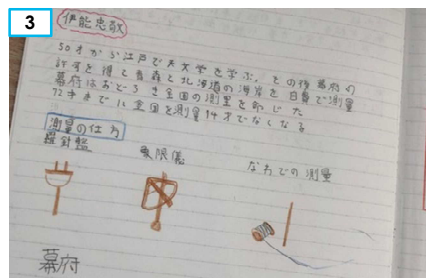 3
伊能忠敬
50才から江戸で天文学を学ぶ。その後幕府の
許可を得て青森と北海道の海岸を自費で測量
幕府はおどろき全国の測量を命じた
72才までに全国を測量74才でなくなる
測量の仕方
羅針盤
象限儀
なわでの測量
幕府